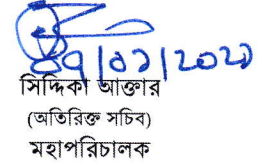 ০৭/০১/২০২১
সিদ্দিকা আক্তার
(অতিরিক্ত সচিব)
মহাপরিচালক